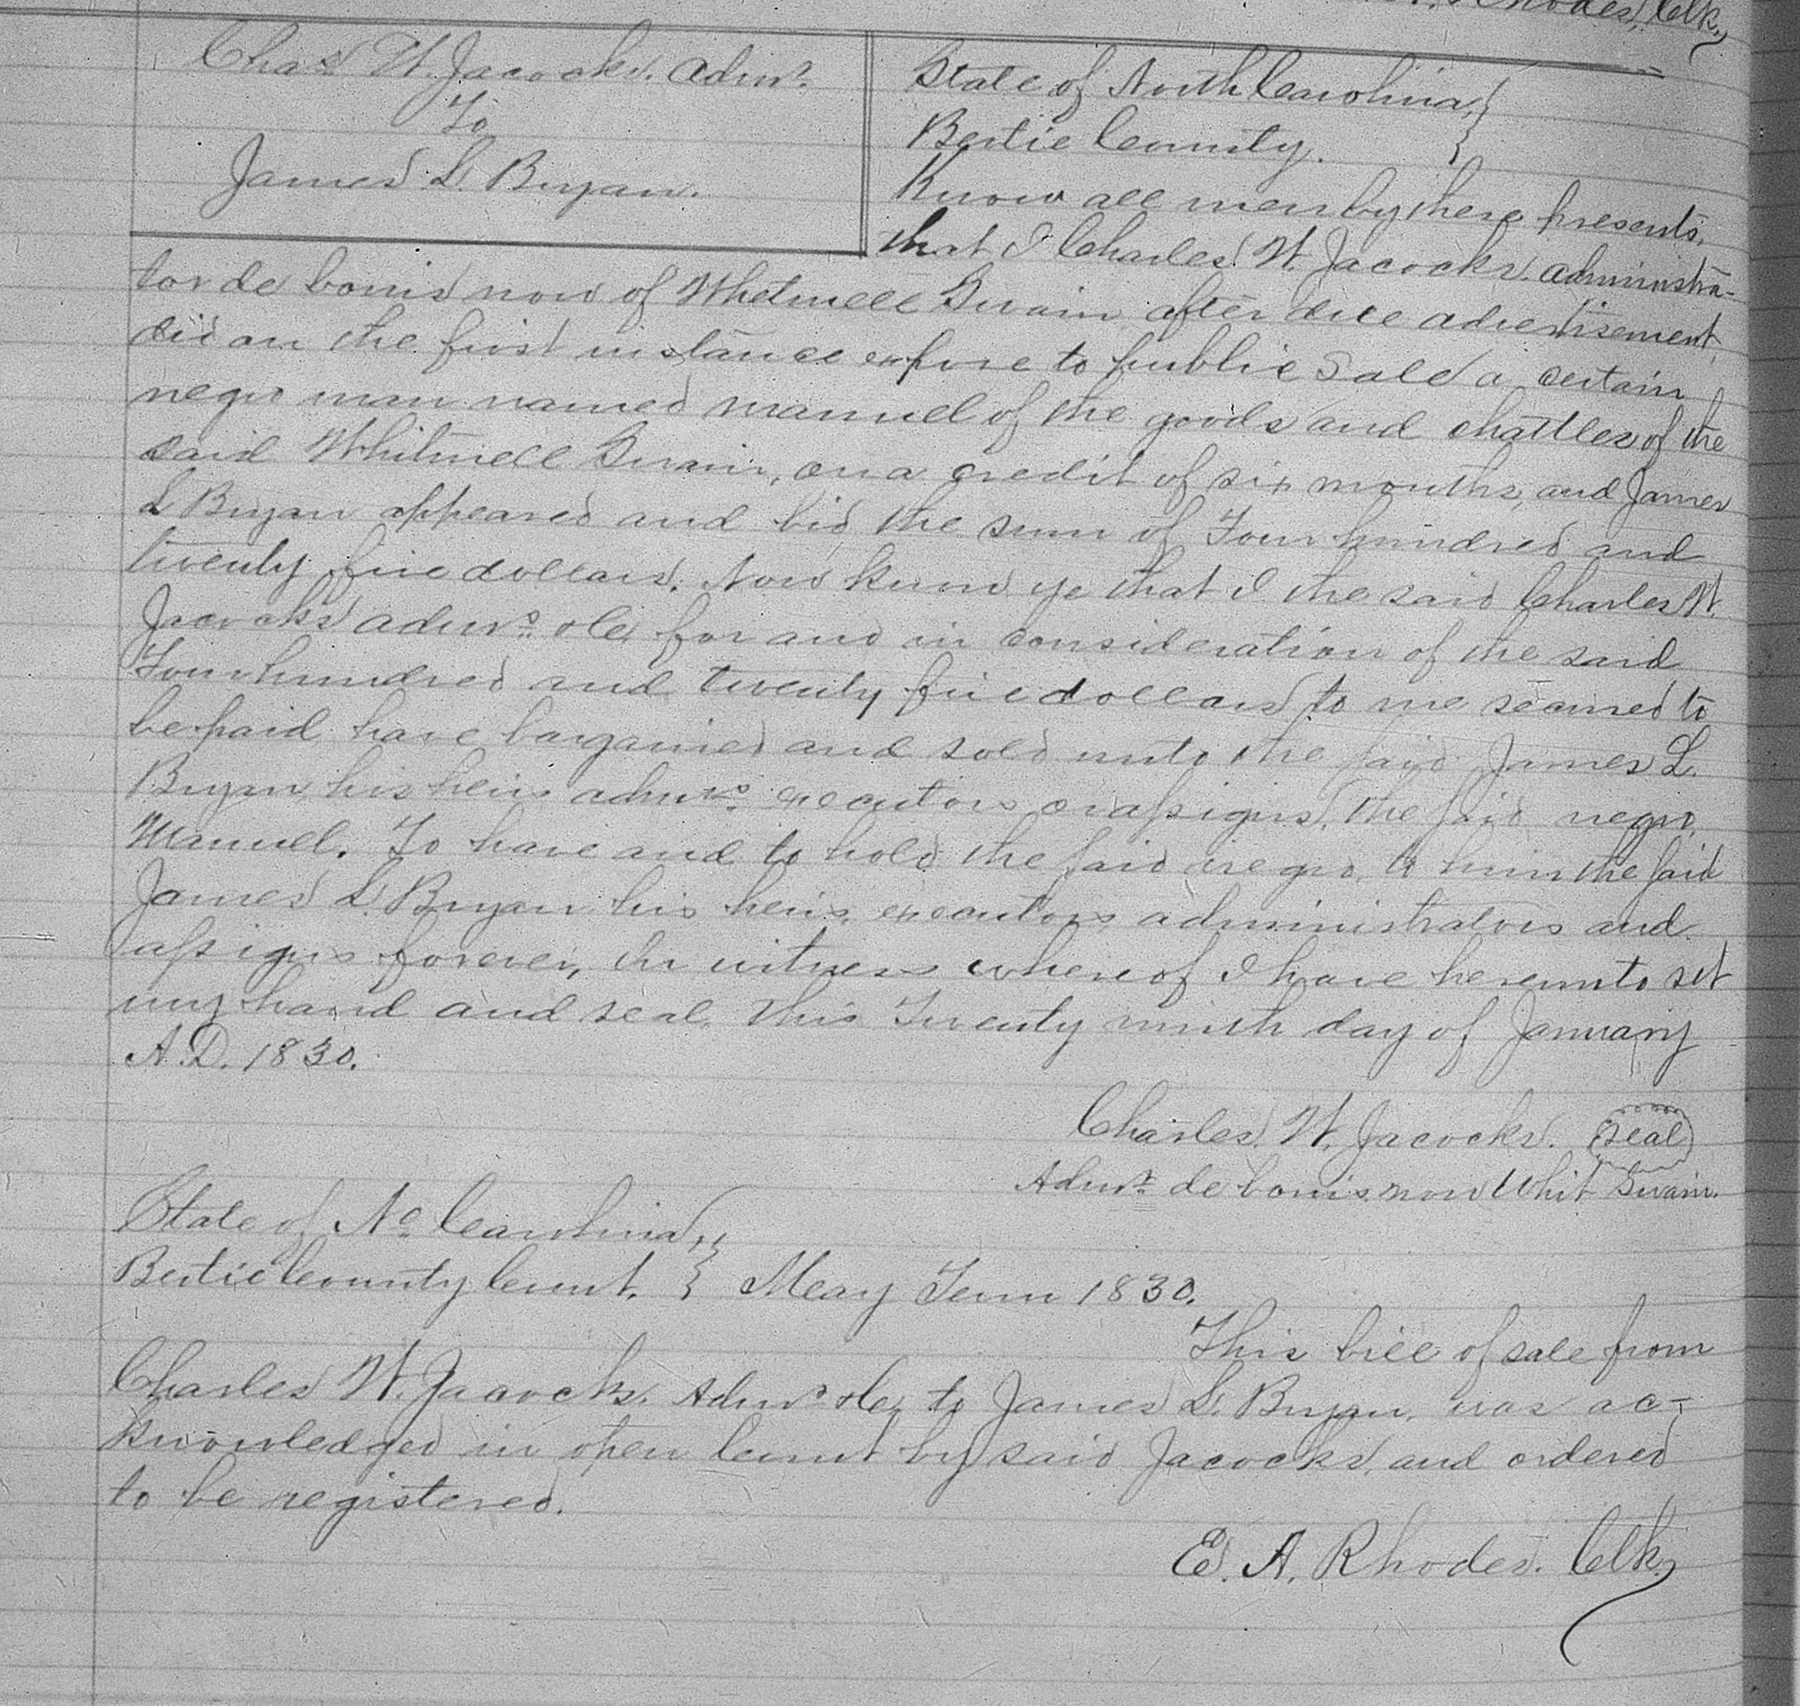 Rhodes, Clk.
Chas W. Jacocks. Admr.
To
James L. Bryan.
State of North Carolina,
Bertie County.
Know all men by these presents,
that I Charles W. Jacocks administra-
tor de bonis non of Whitmell Swain after due advertisement,
did on the first instance expose to public sale a certain
negro man named Manuel of the goods and chattles of the
said Whitmell Swain, on a credit of six months, and James
L Bryan appeared and bid the sum of Four hundred and
twenty five dollars. Now know ye that I the said Charles W.
Jacocks admr. &c, for and in consideration of the said
Four hundred and twenty five dollars to me secured to
be paid have bargained and sold unto the said James L.
Bryan his heirs admrs. executors or assigns, the said negro
Manuel. To have and to hold the said negro, to him the said
James L. Bryan his heirs, executors administrators and
assigns forever, In witness whereof I have hereunto set
my hand and seal, this Twenty ninth day of January
A.D. 1830.
Charles W. Jacocks. Seal
Admr. de bonis non Whit Swain.
State of No Carolina,
Bertie County Court. May Term 1830.
This bill of sale from
Charles W. Jacocks, Admr &c, to James L. Bryan, was ac-
knowledged in open Court by said Jacocks, and ordered
to be registered.
E. A. Rhodes. Clk,